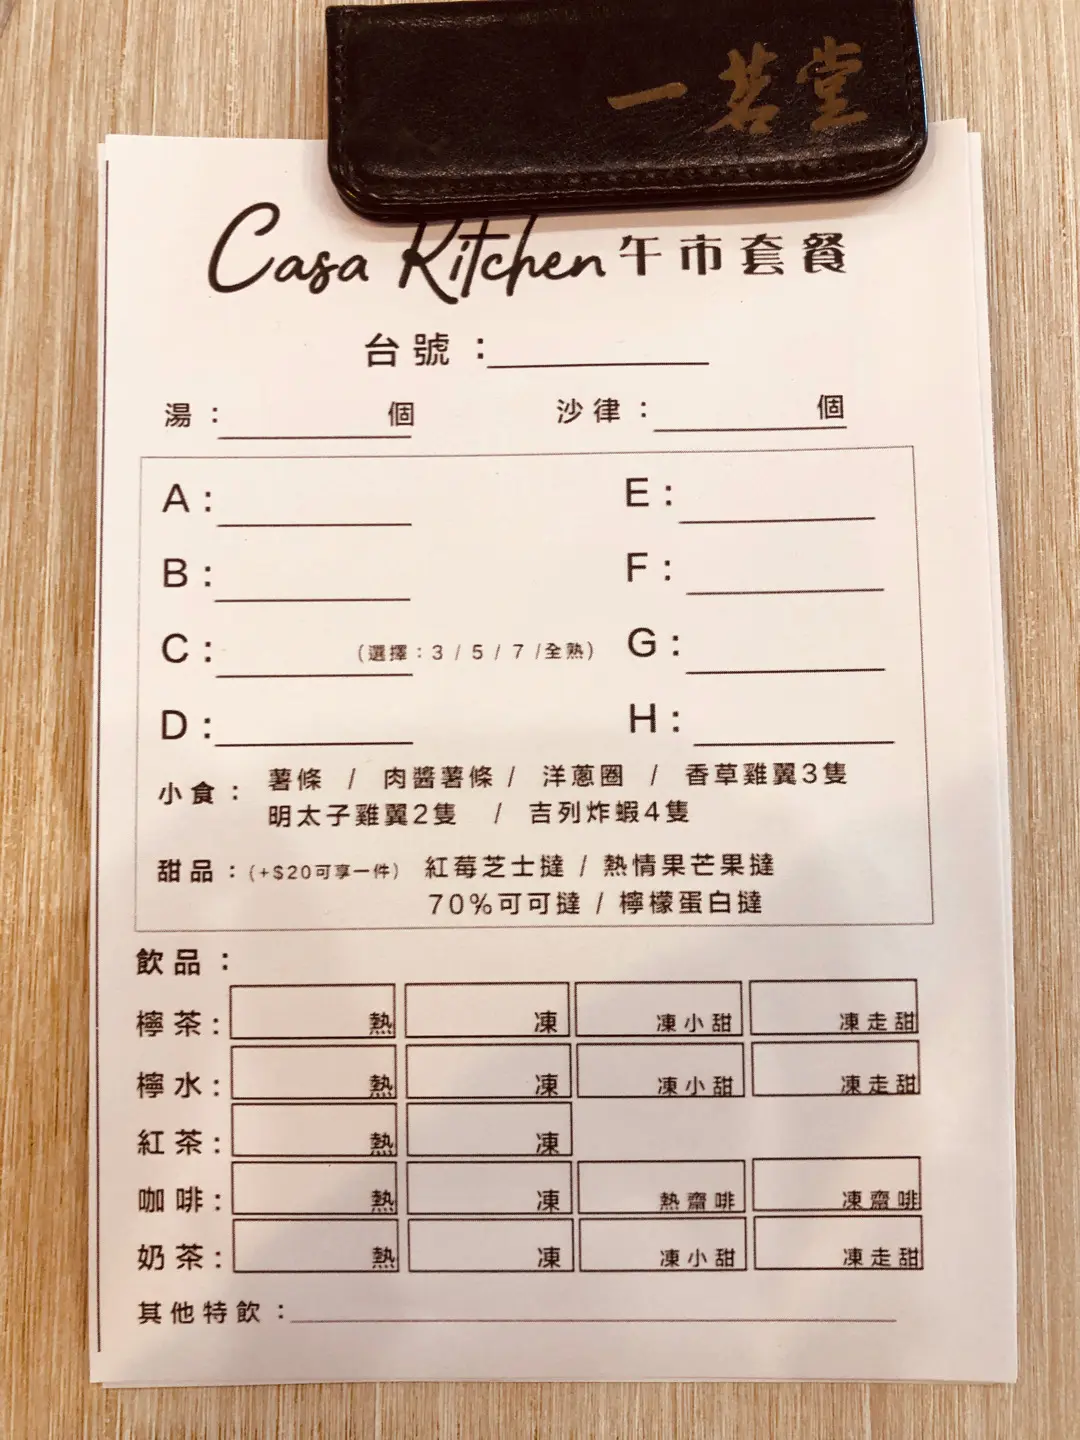 一茗堂
Casa Kitchen 午市套餐
台號：
湯： 個 沙律： 個
A： E：
B： F：
C： (選擇：3 / 5 / 7 /全熟) G：
D： H：
小食： 薯條 / 肉醬薯條 / 洋蔥圈 / 香草雞翼3隻
明太子雞翼2隻 / 吉列炸蝦4隻
甜品：(+$20可享一件) 紅莓芝士撻 / 熱情果芒果撻
70%可可撻 / 檸檬蛋白撻
飲品：
檸茶： 熱 凍 凍小甜 凍走甜
檸水： 熱 凍 凍小甜 凍走甜
紅茶： 熱 凍
咖啡： 熱 凍 熱齋啡 凍齋啡
奶茶： 熱 凍 凍小甜 凍走甜
其他特飲：